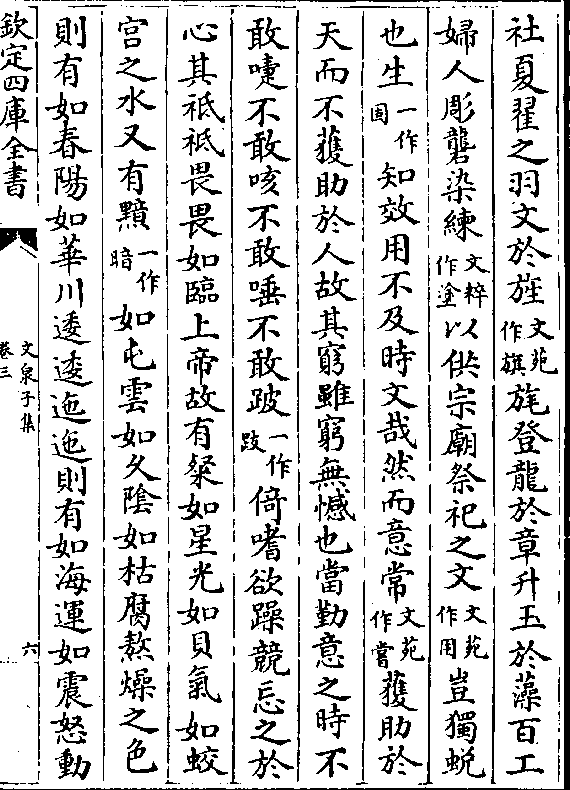 社夏翟之羽文於旌文苑作旗旄登龍於章升玉於藻百工
婦人彫礱染練文粹作塗以供宗廟祭祀之文文苑作用豈獨蛻
也生一作固知效用不及時文哉然而意常文苑作嘗獲助於
天而不獲助於人故其窮雖窮無憾也當勤意之時不
敢嚏不敢咳不敢唾不敢跛一作跂倚嗜欲躁競忘之於
心其祗祗畏畏如臨上帝故有粲如星光如貝氣如蛟
宫之水又有黯一作暗如屯雲如久隂如枯腐熬燥之色
則有如春陽如華川逶逶迤迤則有如海運如震怒動
欽定四庫全書
文泉子集
卷三
六